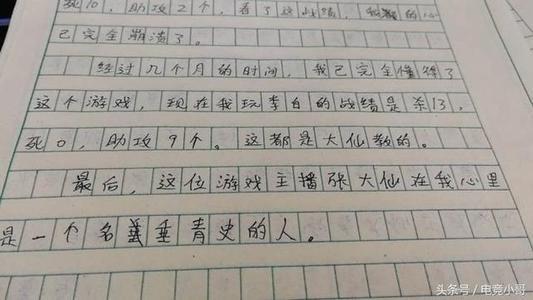 死10，助攻2个，看了这战绩，我的心
已完全崩溃了。
经过几个月的时间，我已完全懂得了
这个游戏，现在我玩李白的战绩是杀13，
死0，助攻9个。这都是大仙教的。
最后，这位游戏主播张大仙在我心里
是一个名垂青史的人。
头条号／电竞小哥